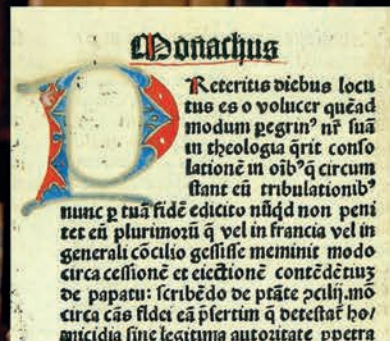 Monachus
PReteritis diebus locu
tus es o volucer quēad
modum peregrin⁹ nr̄ suā
in theologia q̄rit conso
lationē in oīb⁹ q̄ circum
stant eū tribulationib⁹
nunc ꝑ tuā fidē edicito nūqd non peni
tet eū plurimorū q̄ vel in francia vel in
generali cōcilio gessisse meminit modo
circa cessionē et eiectionē contēdētiuꝫ
de papatu: scribēdo de ptāte ꝯcilij. mō
circa cās fidei eā p̄sertim q̄ detestat̄ ho/
micidia sine legitima autoritate ꝑpetra